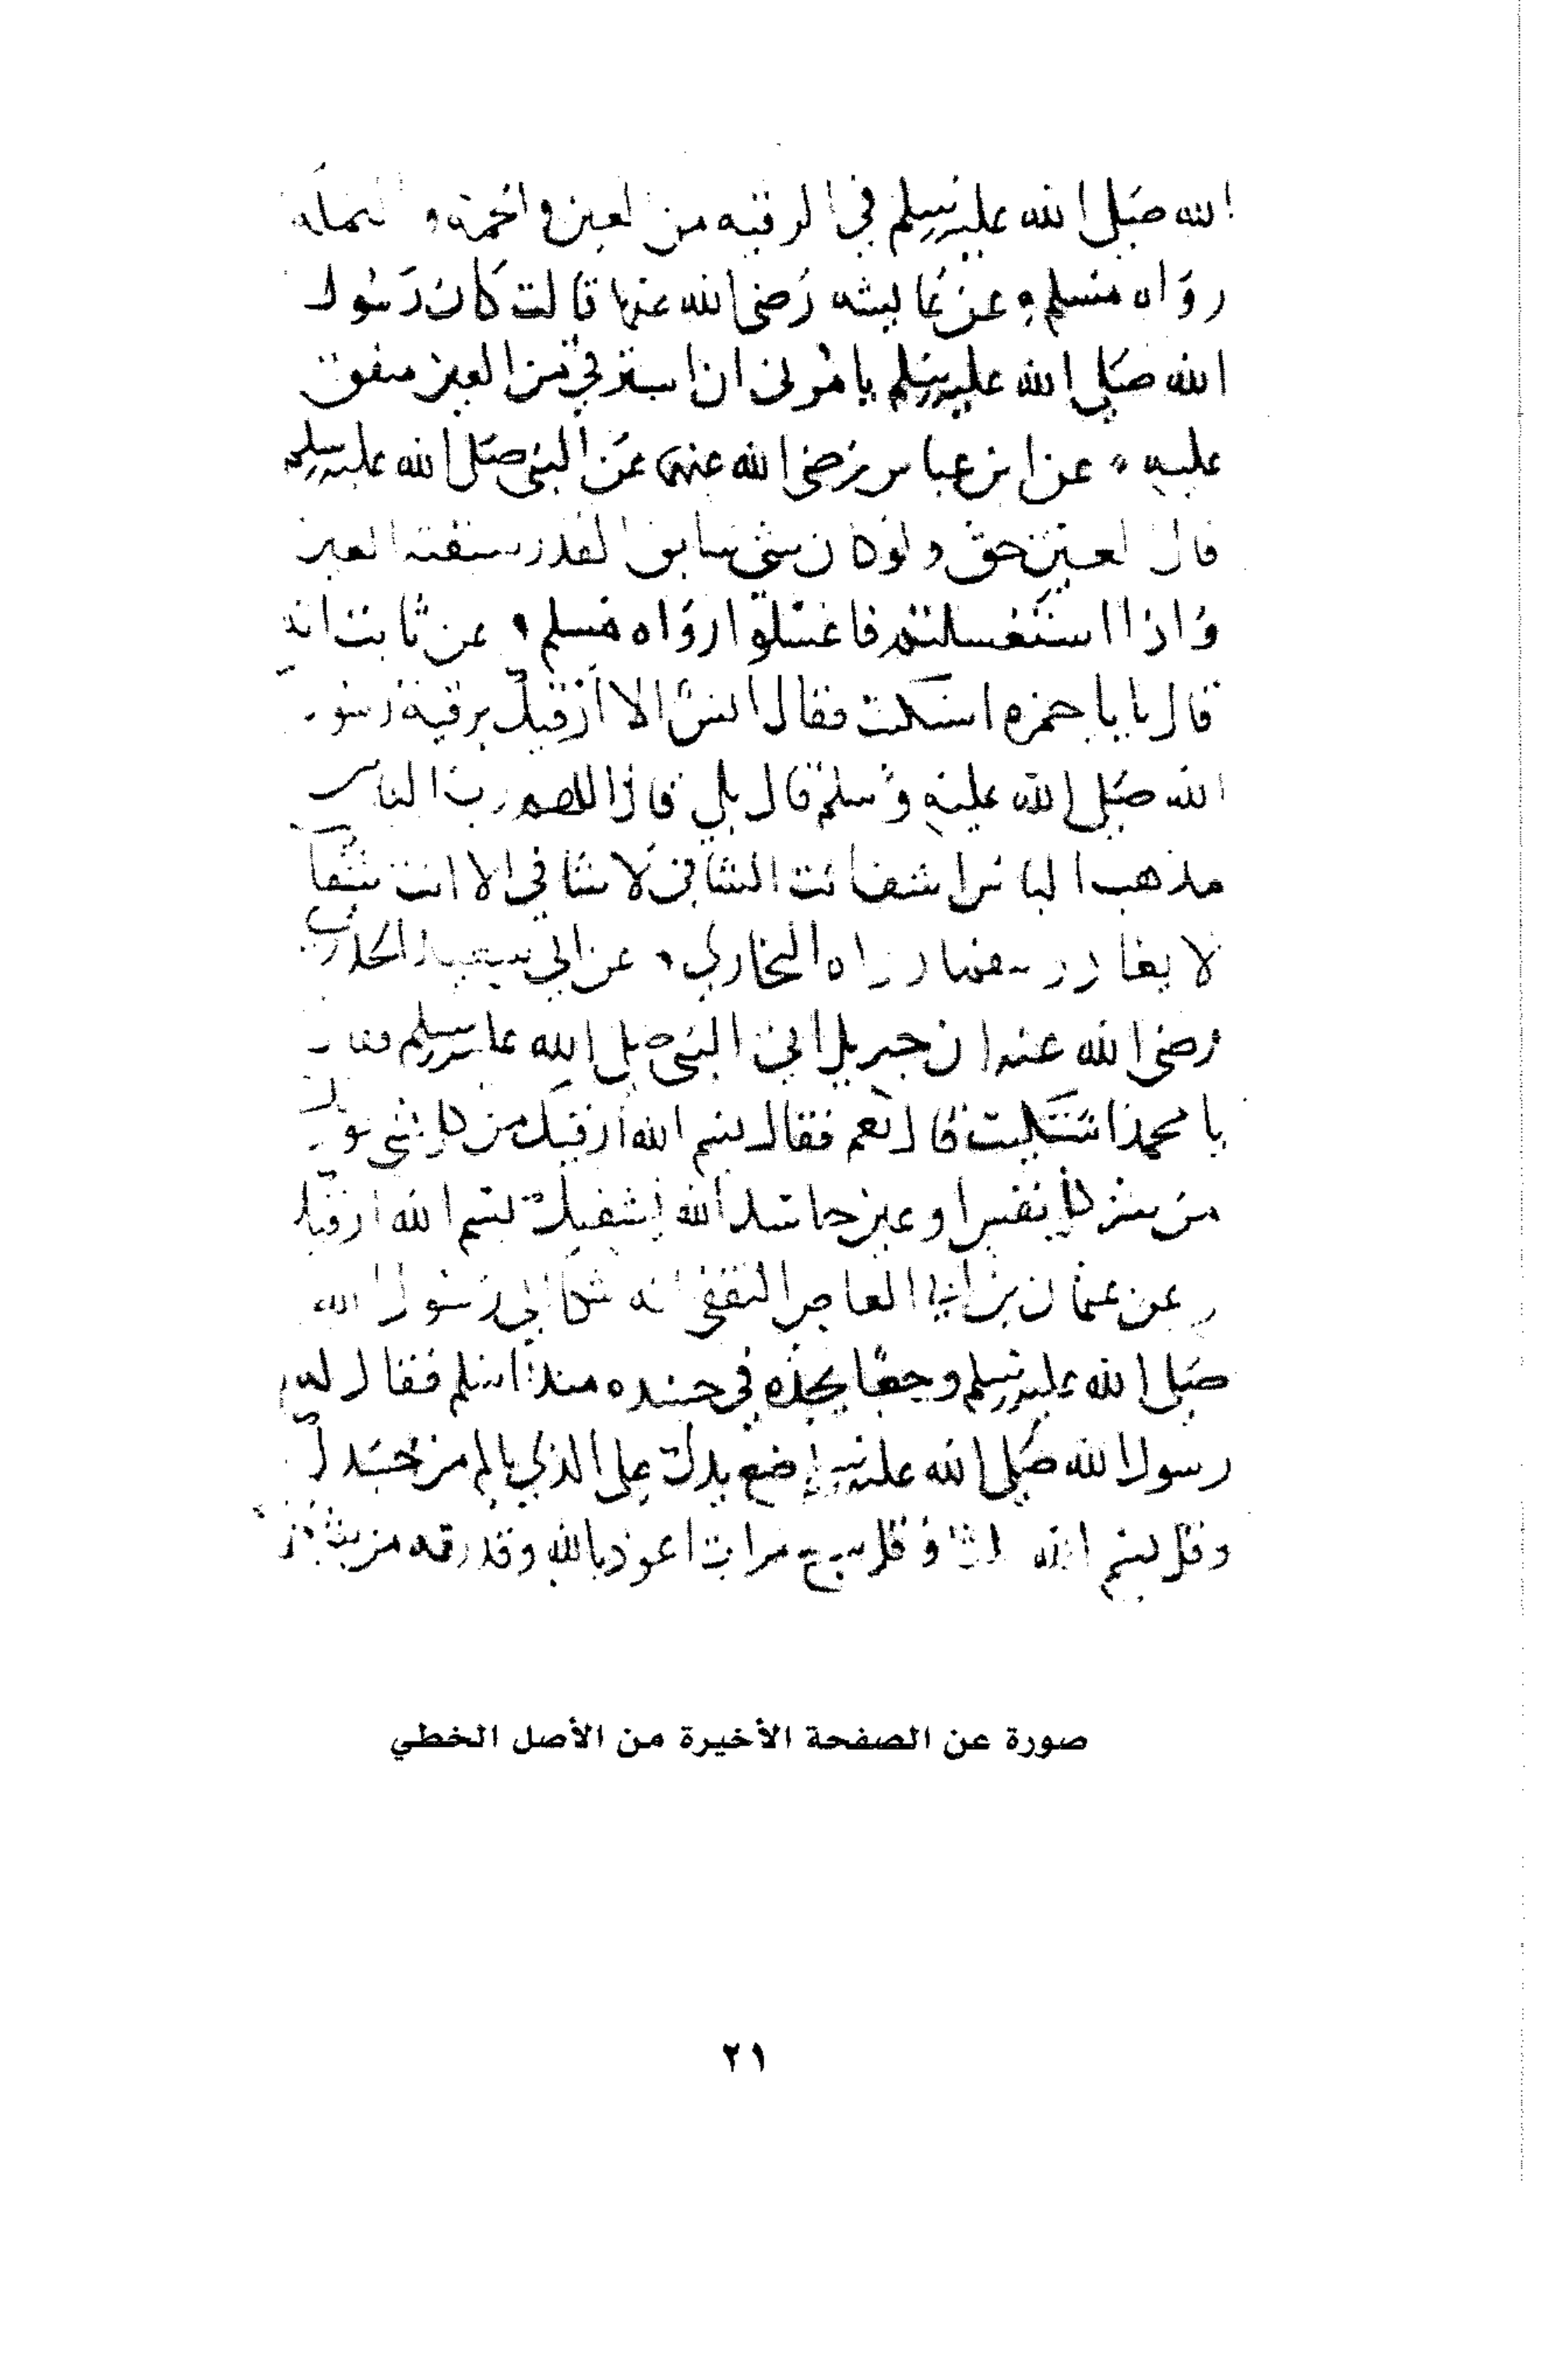 الله صلى الله عليه وسلم في الرقيه من العين والحمة والنملة
رواه مسلم عن عايشه رضي الله عنها قالت كان رسول
الله صلى الله عليه وسلم يامرني ان استرقي من العين متفق
عليه عن ابن عباس رضي الله عنهما عن النبي صلى الله عليه وسلم
قال العين حق ولو كان شي سابق القدر سبقته العين
واذا استغسلتم فاغسلوا رواه مسلم عن ثابت انه
قال يابا حمزه اشتكيت فقال انس الا ارقيك برقية رسول
الله صلى الله عليه وسلم قال بلى قال اللهم رب الناس
مذهب الباس اشف انت الشافي لا شافي الا انت شفا
لا يغادر سقما رواه البخاري عن ابي سعيد الخدري
رضي الله عنه ان جبريل اتى النبي صلى الله عليه وسلم فقال
يا محمد اشتكيت قال نعم فقال بسم الله ارقيك من كل شي يوذيك
من شر كل نفس او عين حاسد الله يشفيك بسم الله ارقيك
عن عثمان بن ابي العاص الثقفي انه شكا الى رسول الله
صلى الله عليه وسلم وجعا يجده في جسده منذ اسلم فقال له
رسول الله صلى الله عليه وسلم ضع يدك على الذي يالم من جسدك
وقل بسم الله ثلاثا وقل سبع مرات اعوذ بالله وقدرته من شر
صورة عن الصفحة الأخيرة من الأصل الخطي
٢١